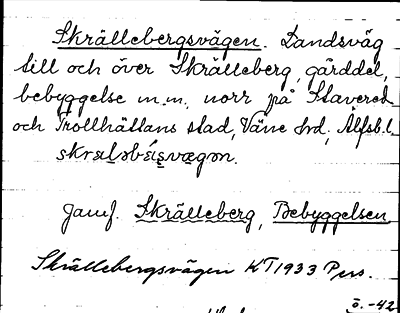 Skrällebergsvägen. Landsväg
till och över Skrälleberg, gärddel,
bebyggelse m.m. norr på Stavered
och Trollhättans stad, Väne hd, Älfsb.l.
Jämf. Skrälleberg, Bebyggelsen
Skrällebergsvägen KT 1933 Pers.
ö.-42